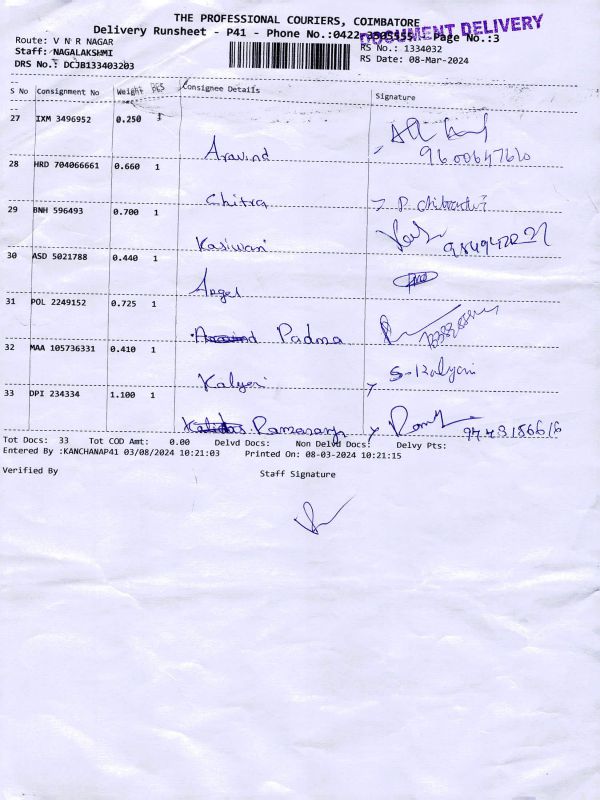 THE PROFESSIONAL COURIERS, COIMBATORE
Delivery Runsheet - P41 - Phone No.:0422- Page No.:3
DOCUMENT DELIVERY
Route: V N R NAGAR
RS No.: 1334032
Staff: NAGALAKSHMI
RS Date: 08-Mar-2024
DRS No.: DCJB133403203
S No Consignment No Weight PCS Consignee Details Signature
27 IXM 3496952 0.250 1
Aravind 9600647610
28 HRD 704066661 0.660 1
Chitra
29 BNH 596493 0.700 1
Kasiwani
30 ASD 5021788 0.440 1
Angel
31 POL 2249152 0.725 1
Padma
32 MAA 105736331 0.410 1
Kalyani S-Kalyani
33 DPI 234334 1.100 1
Tot Docs: 33 Tot COD Amt: 0.00 Delvd Docs: Non Delvd Docs: Delvy Pts:
Entered By :KANCHANAP41 03/08/2024 10:21:03 Printed On: 08-03-2024 10:21:15
Verified By Staff Signature